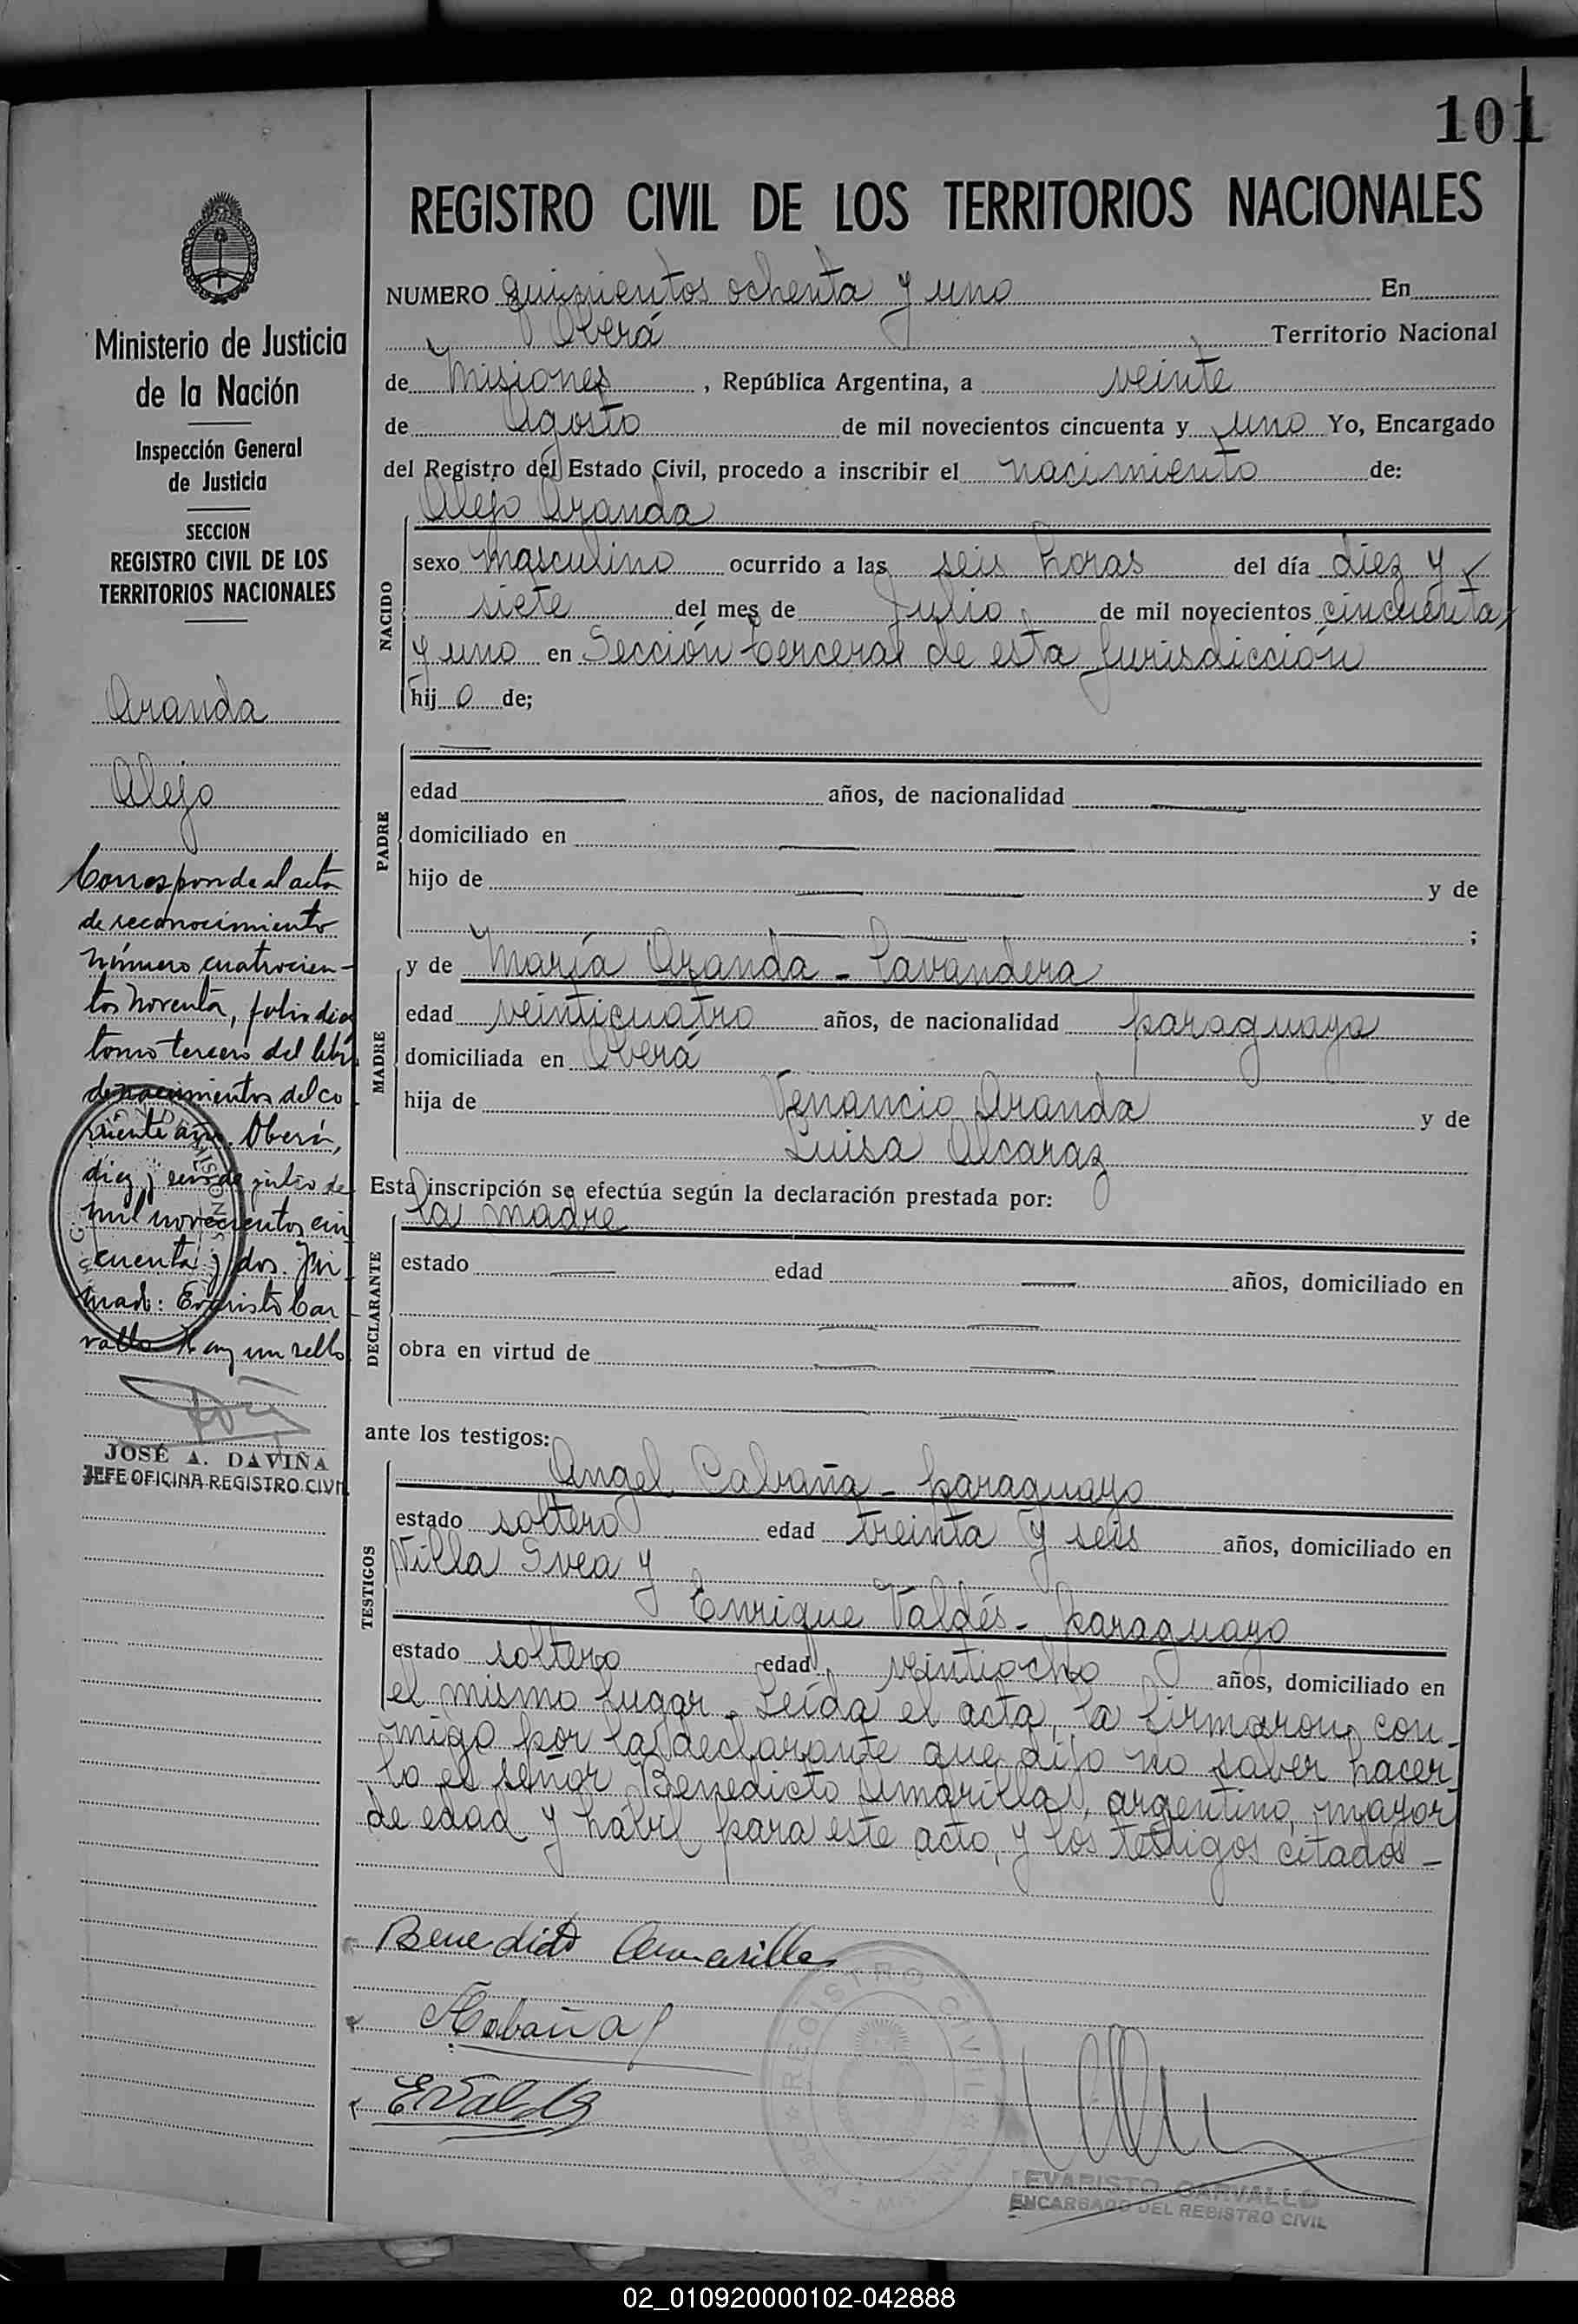 101
REGISTRO CIVIL DE LOS TERRITORIOS NACIONALES
NUMERO quinientos ochenta y uno En
Oberá Territorio Nacional
de Misiones, República Argentina, a veinte
de Agosto de mil novecientos cincuenta y uno Yo, Encargado
del Registro del Estado Civil, procedo a inscribir el nacimiento de:
Alejo Aranda
NACIDO
sexo masculino ocurrido a las seis horas del día diez y
siete del mes de Julio de mil novecientos cincuenta
y uno en Sección tercera de esta Jurisdicción
hij o de;
PADRE
edad años, de nacionalidad
domiciliado en
hijo de y de
;
MADRE
y de María Aranda - lavandera
edad veinticuatro años, de nacionalidad paraguaya
domiciliada en Oberá
hija de Venancio Aranda y de
Luisa Alcaraz
Esta inscripción se efectúa según la declaración prestada por:
DECLARANTE
la madre
estado edad años, domiciliado en
obra en virtud de
ante los testigos:
TESTIGOS
Angel Cabaña - paraguayo
estado soltero edad treinta y seis años, domiciliado en
Villa Svea y
Enrique Valdés - paraguayo
estado soltero edad veintiocho años, domiciliado en
el mismo lugar. Leída el acta, la firmaron con-
migo por la declarante que dijo no saber hacer-
lo el señor Benedicto Amarilla, argentino, mayor
de edad y hábil para este acto, y los testigos citados -
Benedicto Amarilla
ACabaña
EValdés
REGISTRO CIVIL
EVARISTO CARVALLO
ENCARGADO DEL REGISTRO CIVIL
Ministerio de Justicia
de la Nación
Inspección General
de Justicia
SECCION
REGISTRO CIVIL DE LOS
TERRITORIOS NACIONALES
Aranda
Alejo
Corresponde al acta
de reconocimiento
número cuatrocien-
tos noventa, folio diez
tomo tercero del libro
de nacimientos del co-
rriente año. Oberá,
diez y seis de julio de
mil novecientos cin
cuenta y dos. Fir
mado: Evaristo Car-
vallo Hay un sello
JOSÉ A. DAVIÑA
JEFE OFICINA REGISTRO CIVIL
02_010920000102-042888